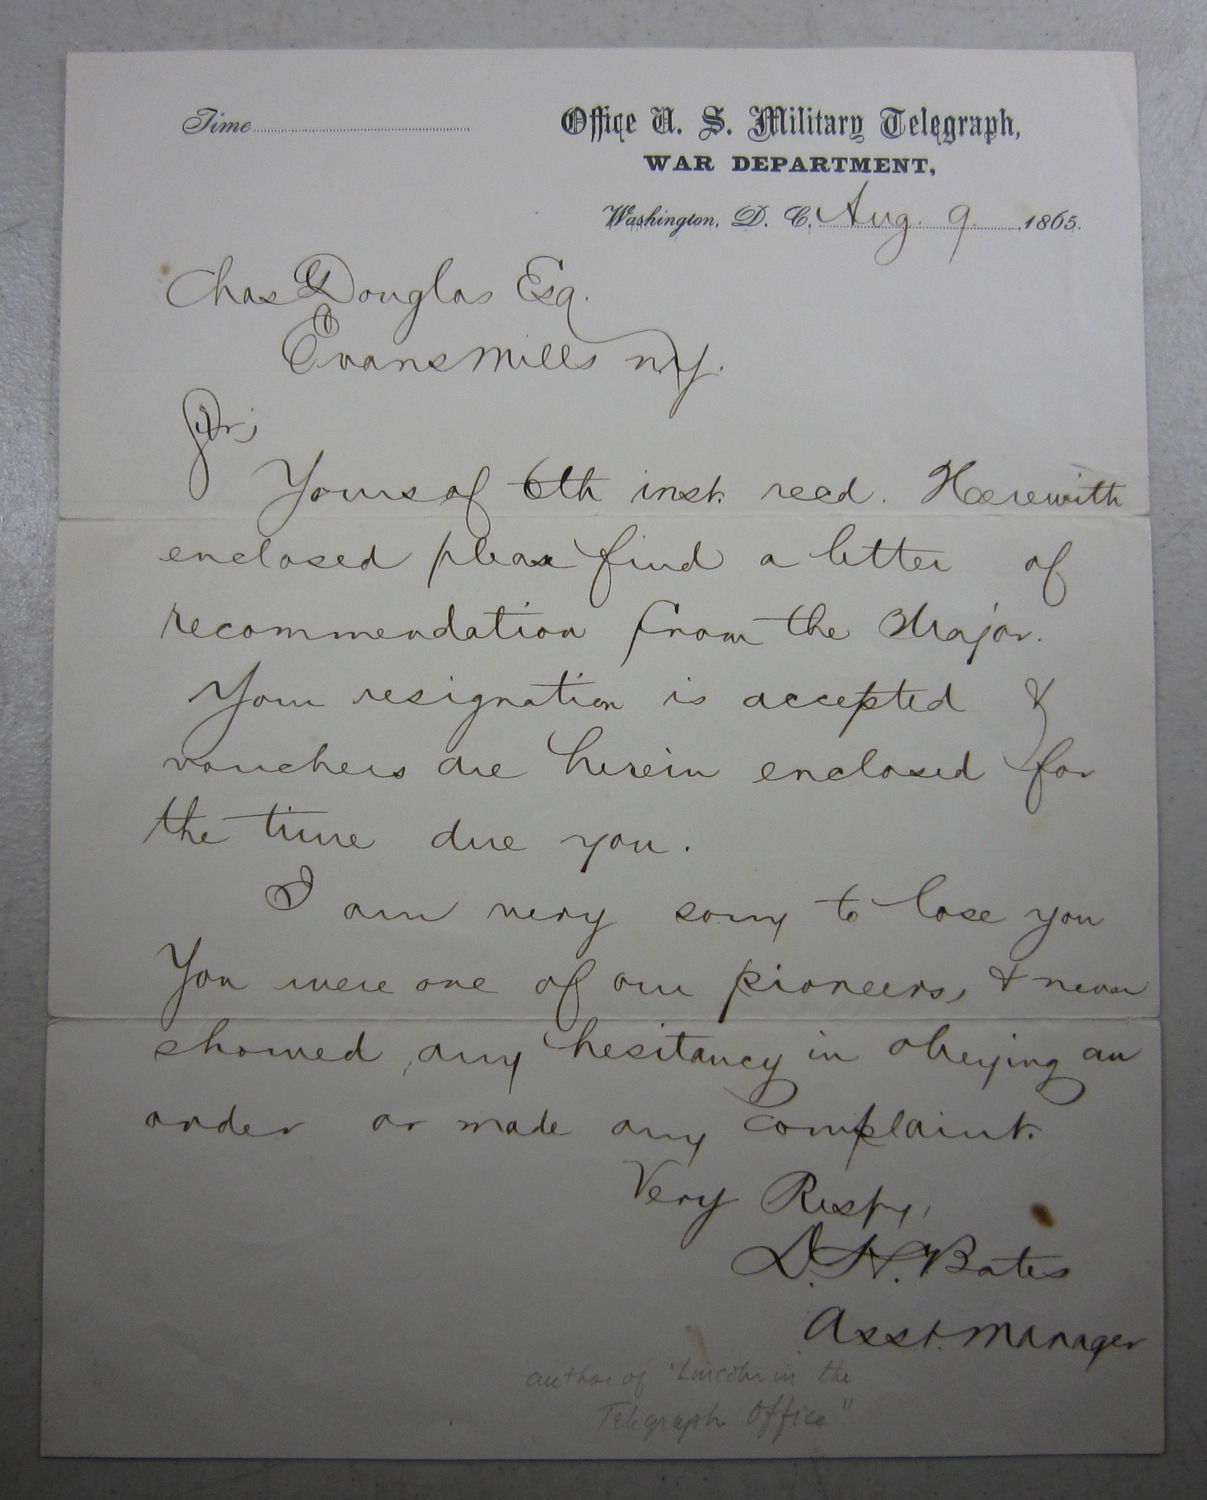 Time
Office U. S. Military Telegraph,
WAR DEPARTMENT,
Washington, D. C. Aug. 9 1865.
Chas Douglas Esq.
Evans Mills NY.
Sir,
Yours of 6th inst. recd. Herewith
enclosed please find a letter of
recommendation from the Major.
Your resignation is accepted &
vouchers are herein enclosed for
the time due you.
I am very sorry to lose you
You were one of our pioneers, & never
showed any hesitancy in obeying an
order or made any complaint.
Very Respy,
D. H. Bates
Asst. Manager
author of "Lincoln in the
Telegraph Office"